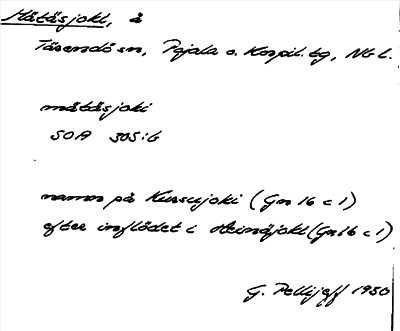 Mätäsjoki, å
Tärendö sn, Pajala o. Korpil. tg, Nb l.
mätäsjoki
SOA 305:6
namn på Kursujoki (Gn 16 c 1)
efter inflödet i Heinäjoki (Gn 16 c 1)
G. Pellijeff 1950